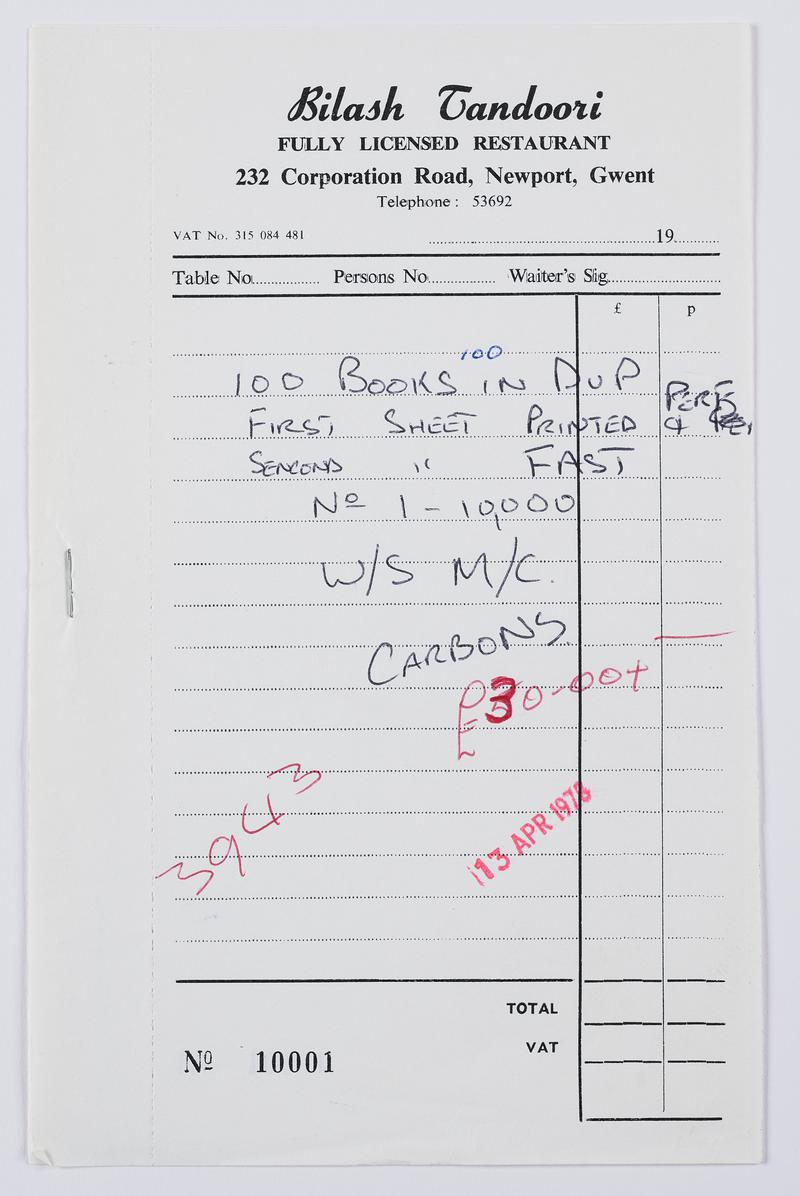 Bilash Tandoori
FULLY LICENSED RESTAURANT
232 Corporation Road, Newport, Gwent
Telephone : 53692
VAT No. 315 084 481
19
Table No. Persons No. Waiter's Sig.
£ p
100
100 BOOKS IN DUP
FIRST SHEET PRINTED PERF &
SENCOND " FAST
Nº 1 - 10,000
W/S M/C.
CARBONS
£30-00+
3943
13 APR 1978
TOTAL
VAT
Nº 10001